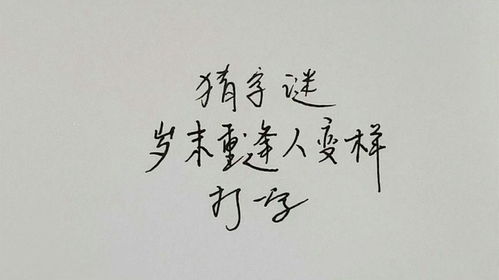 猜字谜
岁末重逢人变样
打一字